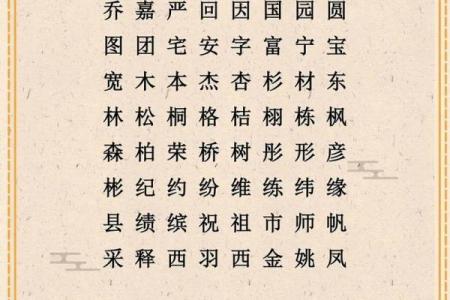 乔 嘉 严 回 因 国 园 圆
图 团 宅 安 字 富 宁 宝
宽 木 本 杰 杏 杉 材 东
林 松 桐 格 桔 栩 栋 枫
森 柏 荣 桥 树 彤 形 彦
彬 纪 约 纷 维 练 纬 缘
县 绩 缤 祝 祖 市 师 帆
采 释 西 羽 西 金 姚 凤